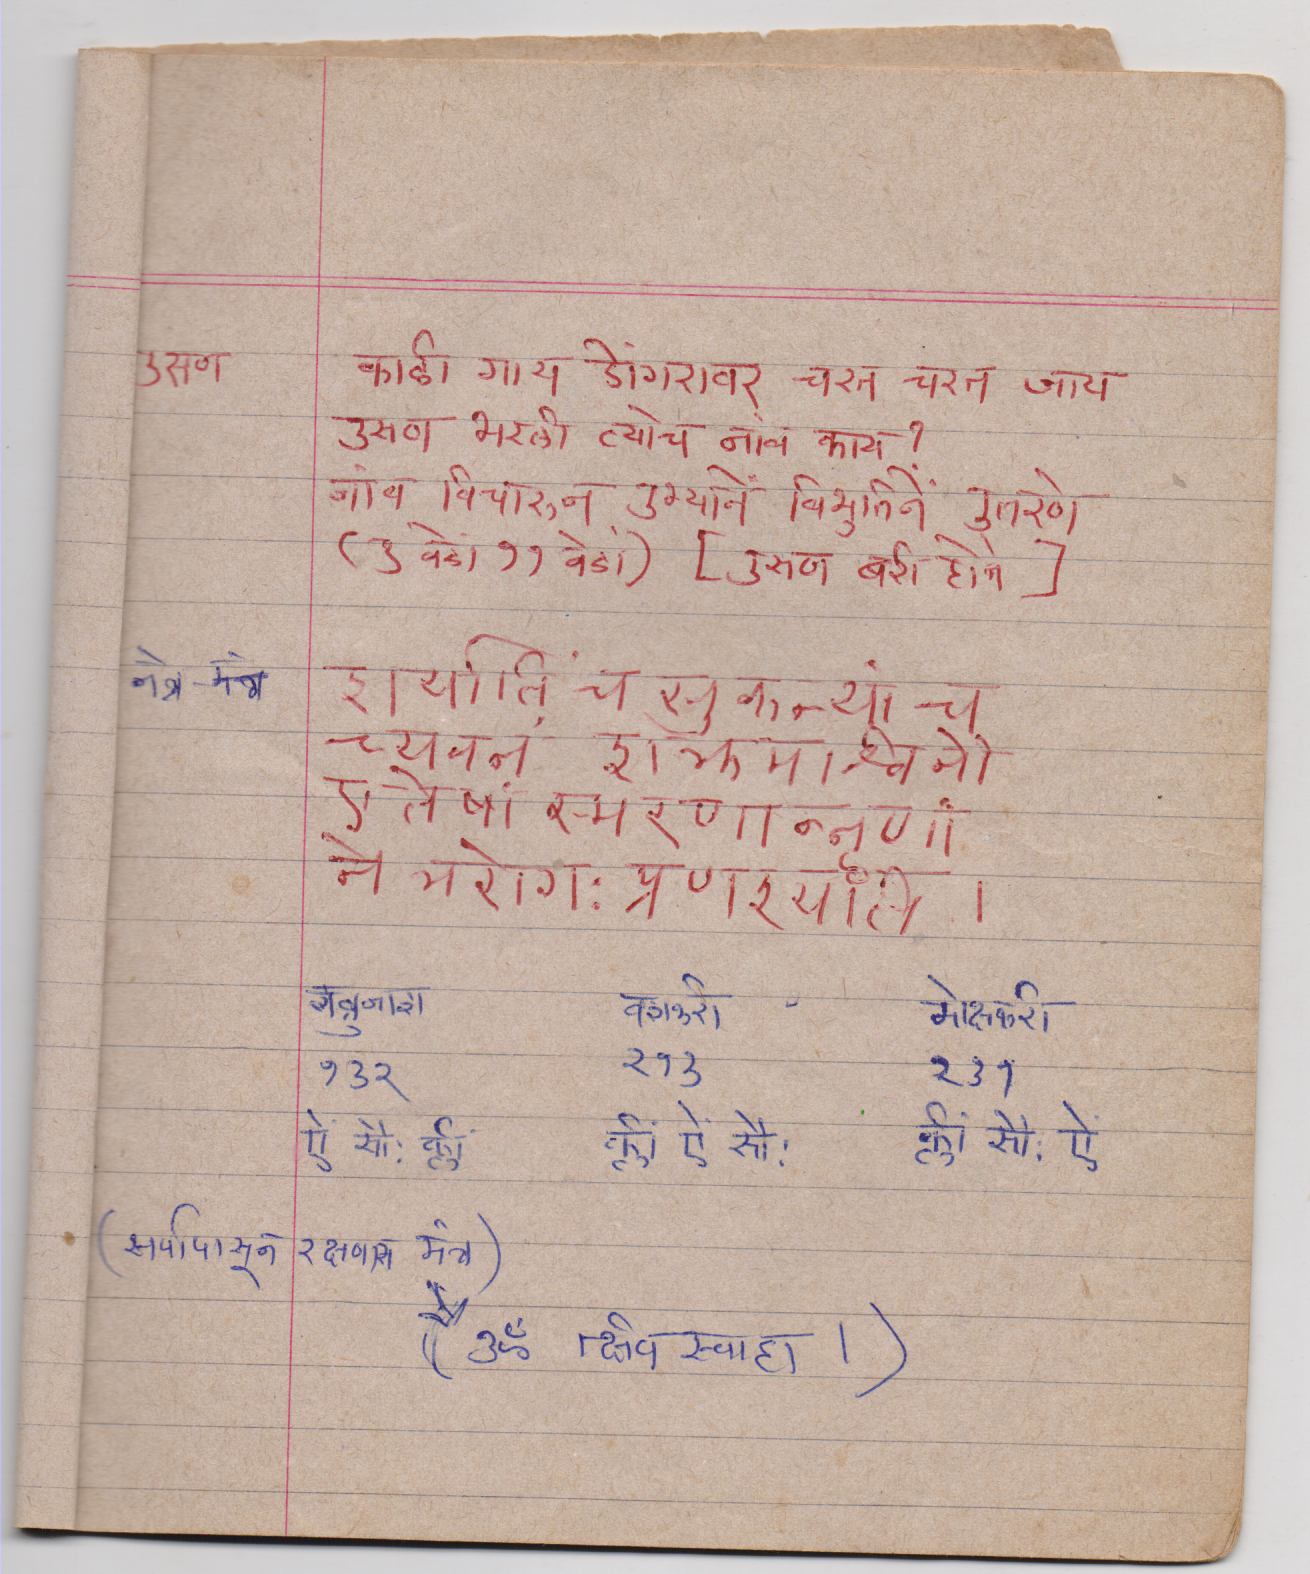 उसण काळी गाय डोंगरावर चरत चरत जाय
उसण भरली त्याचं नांव काय?
नांव विचारुन उभ्यानें विभुतिनें उतरणे
(३ वेळां ११ वेळां) [उसण बरी होते]
नेत्र-मंत्र शर्यातिं च सुकन्यां च
च्यवनं शक्रमाश्विनौ
एतेषां स्मरणान्नृणां
नेत्ररोगः प्रणश्यति ।
शत्रुनाश वशकरी मोक्षकरी
१३२ २१३ २३१
ऐं सौः क्लीं क्लीं ऐं सौः क्लीं सौः ऐं
(सर्पापासून रक्षणास मंत्र)
(ॐ स्वाहा ।)